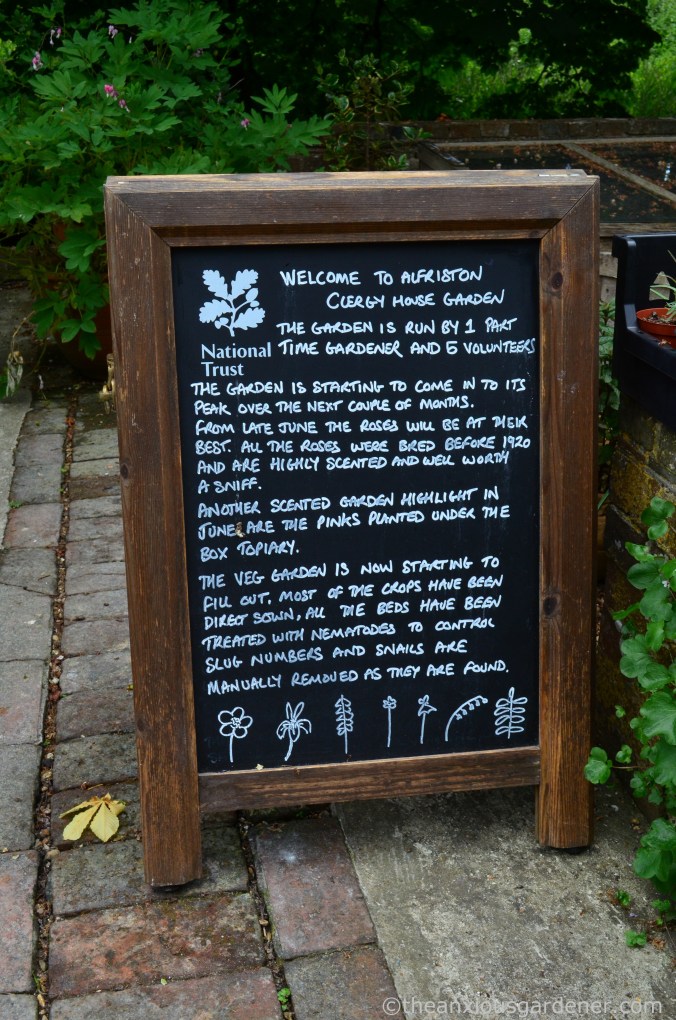 WELCOME TO ALFRISTON
CLERGY HOUSE GARDEN
THE GARDEN IS RUN BY 1 PART
TIME GARDENER AND 5 VOLUNTEERS
National
Trust
THE GARDEN IS STARTING TO COME IN TO ITS
PEAK OVER THE NEXT COUPLE OF MONTHS.
FROM LATE JUNE THE ROSES WILL BE AT THEIR
BEST. ALL THE ROSES WERE BRED BEFORE 1920
AND ARE HIGHLY SCENTED AND WELL WORTH
A SNIFF.
ANOTHER SCENTED GARDEN HIGHLIGHT IN
JUNE ARE THE PINKS PLANTED UNDER THE
BOX TOPIARY.
THE VEG GARDEN IS NOW STARTING TO
FILL OUT, MOST OF THE CROPS HAVE BEEN
DIRECT SOWN, ALL THE BEDS HAVE BEEN
TREATED WITH NEMATODES TO CONTROL
SLUG NUMBERS AND SNAILS ARE
MANUALLY REMOVED AS THEY ARE FOUND.
©theanxiousgardener.com